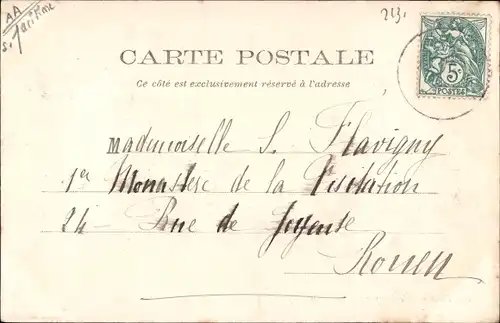 AA
S.
213.
5c
POSTES
CARTE POSTALE
Ce côté est exclusivement réservé à l'adresse
Mademoiselle S. Flavigny
1er Monastere de la Visitation
24 - Rue de Joyeuse
Rouen